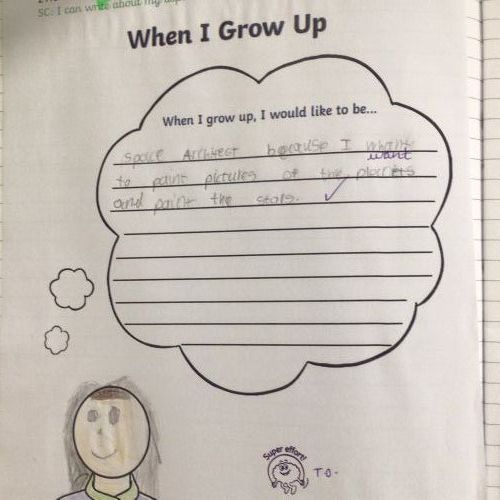 SC: I can write about my
When I Grow Up
When I grow up, I would like to be...
Space Arritect because I whant
want
to paint pictures of the planets
and paint the stars.
Super effort!
T.O.